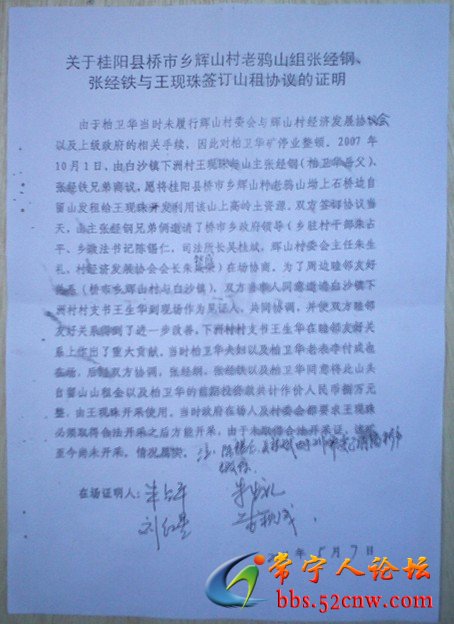 关于桂阳县桥市乡辉山村老鸦山组张经钢、
张经铁与王现珠签订山租协议的证明
由于柏卫华当时未履行辉山村委会与辉山村经济发展协议会
以及上级政府的相关手续，因此对柏卫华矿停业整顿。2007年
10月1日，由白沙镇下洲村王现珠与山主张经钢（柏卫华岳父）、
张经铁兄弟商议，愿将桂阳县桥市乡辉山村老鸦山坳上石桥边自
留山发租给王现珠开发利用该山上高岭土资源。双方签订协议当
天，由主张经钢兄弟俩邀请了桥市乡政府领导（乡驻村干部朱占
平、乡政法书记陈锡仁，司法所长吴桂斌，辉山村委会主任朱生
礼，村经济发展协会会长朱
）在场协商。为了周边睦邻友好
关系（桥市乡辉山村与白沙镇），双方当事人同意邀请白沙镇下
洲村村支书王生华到现场作为见证人，共同协调，并使双方睦邻
友好关系得到了进一步改善，下洲村村支书王生华在睦邻友好关
系上作出了重大贡献。当时柏卫华夫妇以及柏卫华老表李付成也
在场，后经双方协调，张经钢、张经铁以及柏卫华同意将此山头
自留山山租金以及柏卫华的前期投资款共计作价人民币捌万元
整，由王现珠开采使用。当时政府在场人及村委会都要求王现珠
必须取得合法开采之后方能开采，由于未取得合法开采证，该矿
至今尚未开采，情况属实。
在场证明人：朱占平 朱生礼
刘红星
年 5月7日
常宁人论坛
bbs.52cnw.com